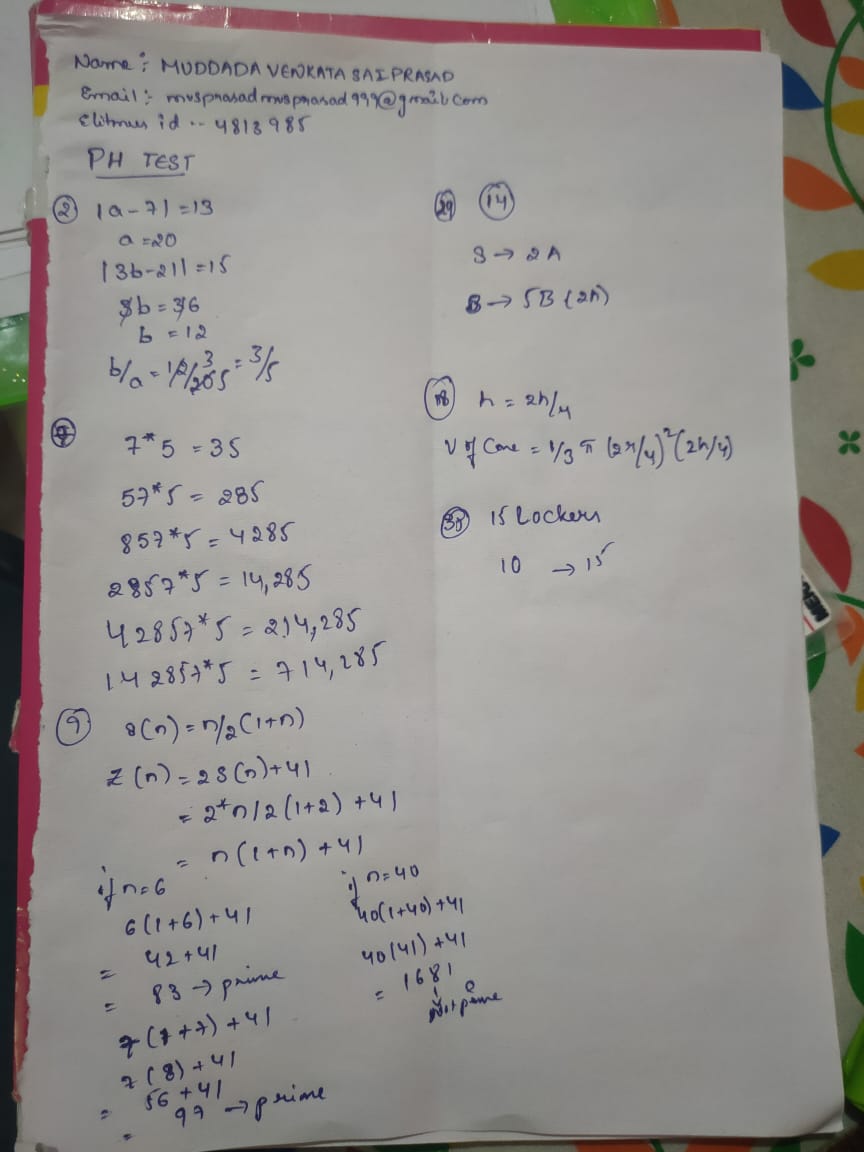 Name : MUDDADA VENKATA SAI PRASAD
Email :- mvsprasadmvsprasad999@gmail.com
Elitmus id :- 4813985
PH TEST
2 |a-7| = 13
a = 20
|3b-21| = 15
3b = 36
b = 12
b/a = 12/20 3/5 = 3/5
7*5 = 35
57*5 = 285
857*5 = 4285
2857*5 = 14,285
42857*5 = 214,285
142857*5 = 714,285
9 S(n) = n/2(1+n)
Z(n) = 2S(n)+41
= 2*n/2(1+2)+41
= n(1+n)+41
if n=6
6(1+6)+41
= 42+41
= 83 → prime
7(1+7)+41
7(8)+41
= 56+41
= 97 → prime
if n=40
40(1+40)+41
40(41)+41
= 1681
Not prime
29 14
S → 2A
B → 5B (2A)
18 h = 2h/4
V of Cone = 1/3 π (2r/4)²(2h/4)
30 15 Lockers
10 → 15